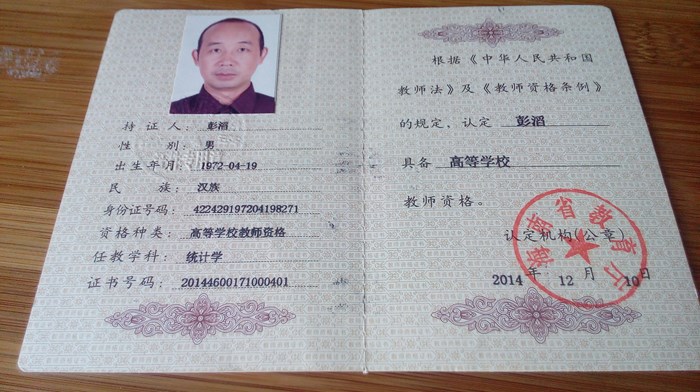 持 证 人： 彭滔
性 别： 男
出 生 年 月 1972-04-19
民 族： 汉族
身份证号码： 422429197204198271
资格种类： 高等学校教师资格
任教学科： 统计学
证书号码： 20144600171000401
根据《中华人民共和国
教师法》及《教师资格条例》
的规定，认定 彭滔
具备 高等学校
教师资格。
海南省教育厅
认定机构(公章)
2014 年 12 月 10 日